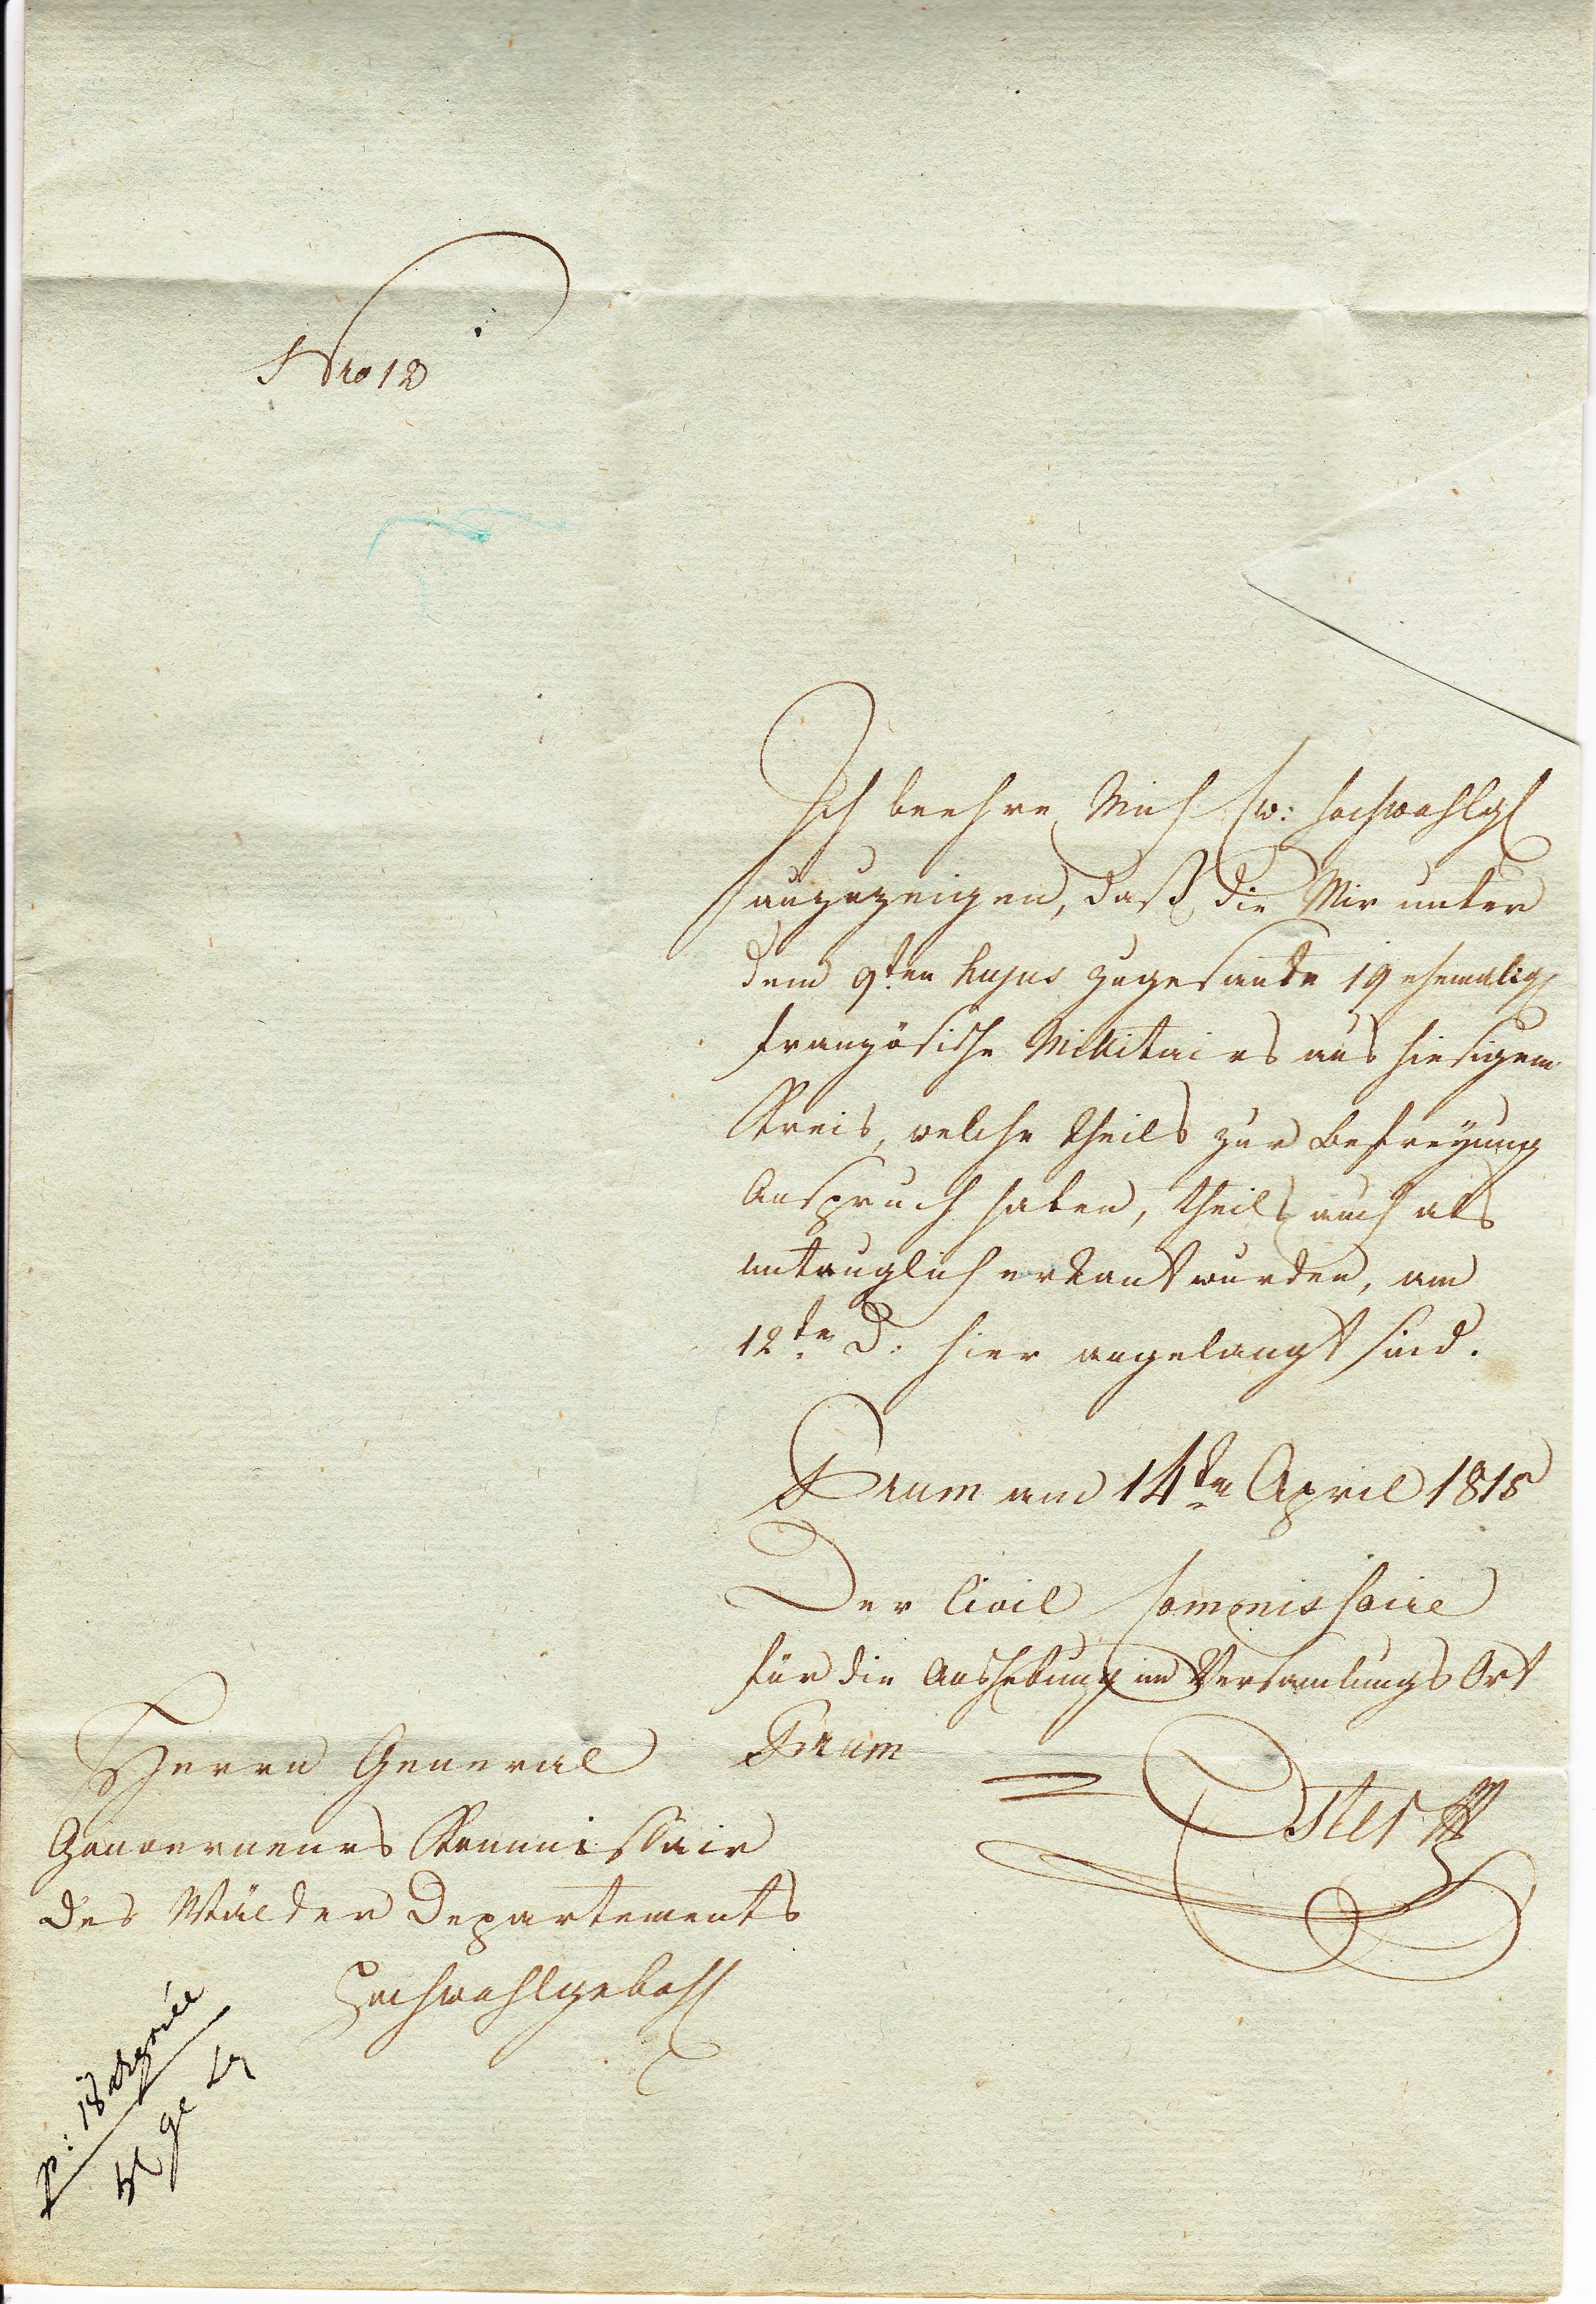 Nro 12
Ich beehre Mich Ew: Hochwohlgb
anzuzeigen, daß die Mir unter
dem 9ten hujus zugesante 19 ehemalig
französische Militairs aus hiesigem
Kreis, welche theils zur Befreÿung
Anspruch haben, theils auch als
untauglich erkant wurden, am
12ten d: hier angelangt sind.
Prum am 14ten April 1815
Der Civil Commissaire
für die Aushebung im Versamlungs Ort
Prum
Herrn General
Gouverneurs Kommissair
des Wälder Departements
Hochwohlgebohr
p: 18 April